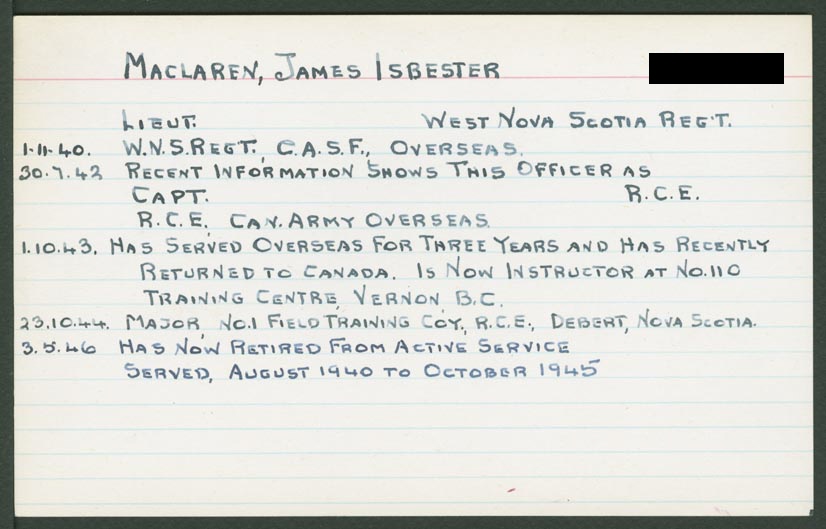 MACLAREN, JAMES ISBESTER
LIEUT. WEST NOVA SCOTIA REG'T.
1.11.40. W.N.S.REGT., C.A.S.F., OVERSEAS.
30.7.42 RECENT INFORMATION SHOWS THIS OFFICER AS
CAPT. R.C.E.
R.C.E. CAN. ARMY OVERSEAS.
1.10.43. HAS SERVED OVERSEAS FOR THREE YEARS AND HAS RECENTLY
RETURNED TO CANADA. IS NOW INSTRUCTOR AT NO.110
TRAINING CENTRE, VERNON, B.C.
23.10.44. MAJOR, NO.1 FIELD TRAINING COY., R.C.E., DEBERT, NOVA SCOTIA.
3.5.46 HAS NOW RETIRED FROM ACTIVE SERVICE
SERVED, AUGUST 1940 TO OCTOBER 1945